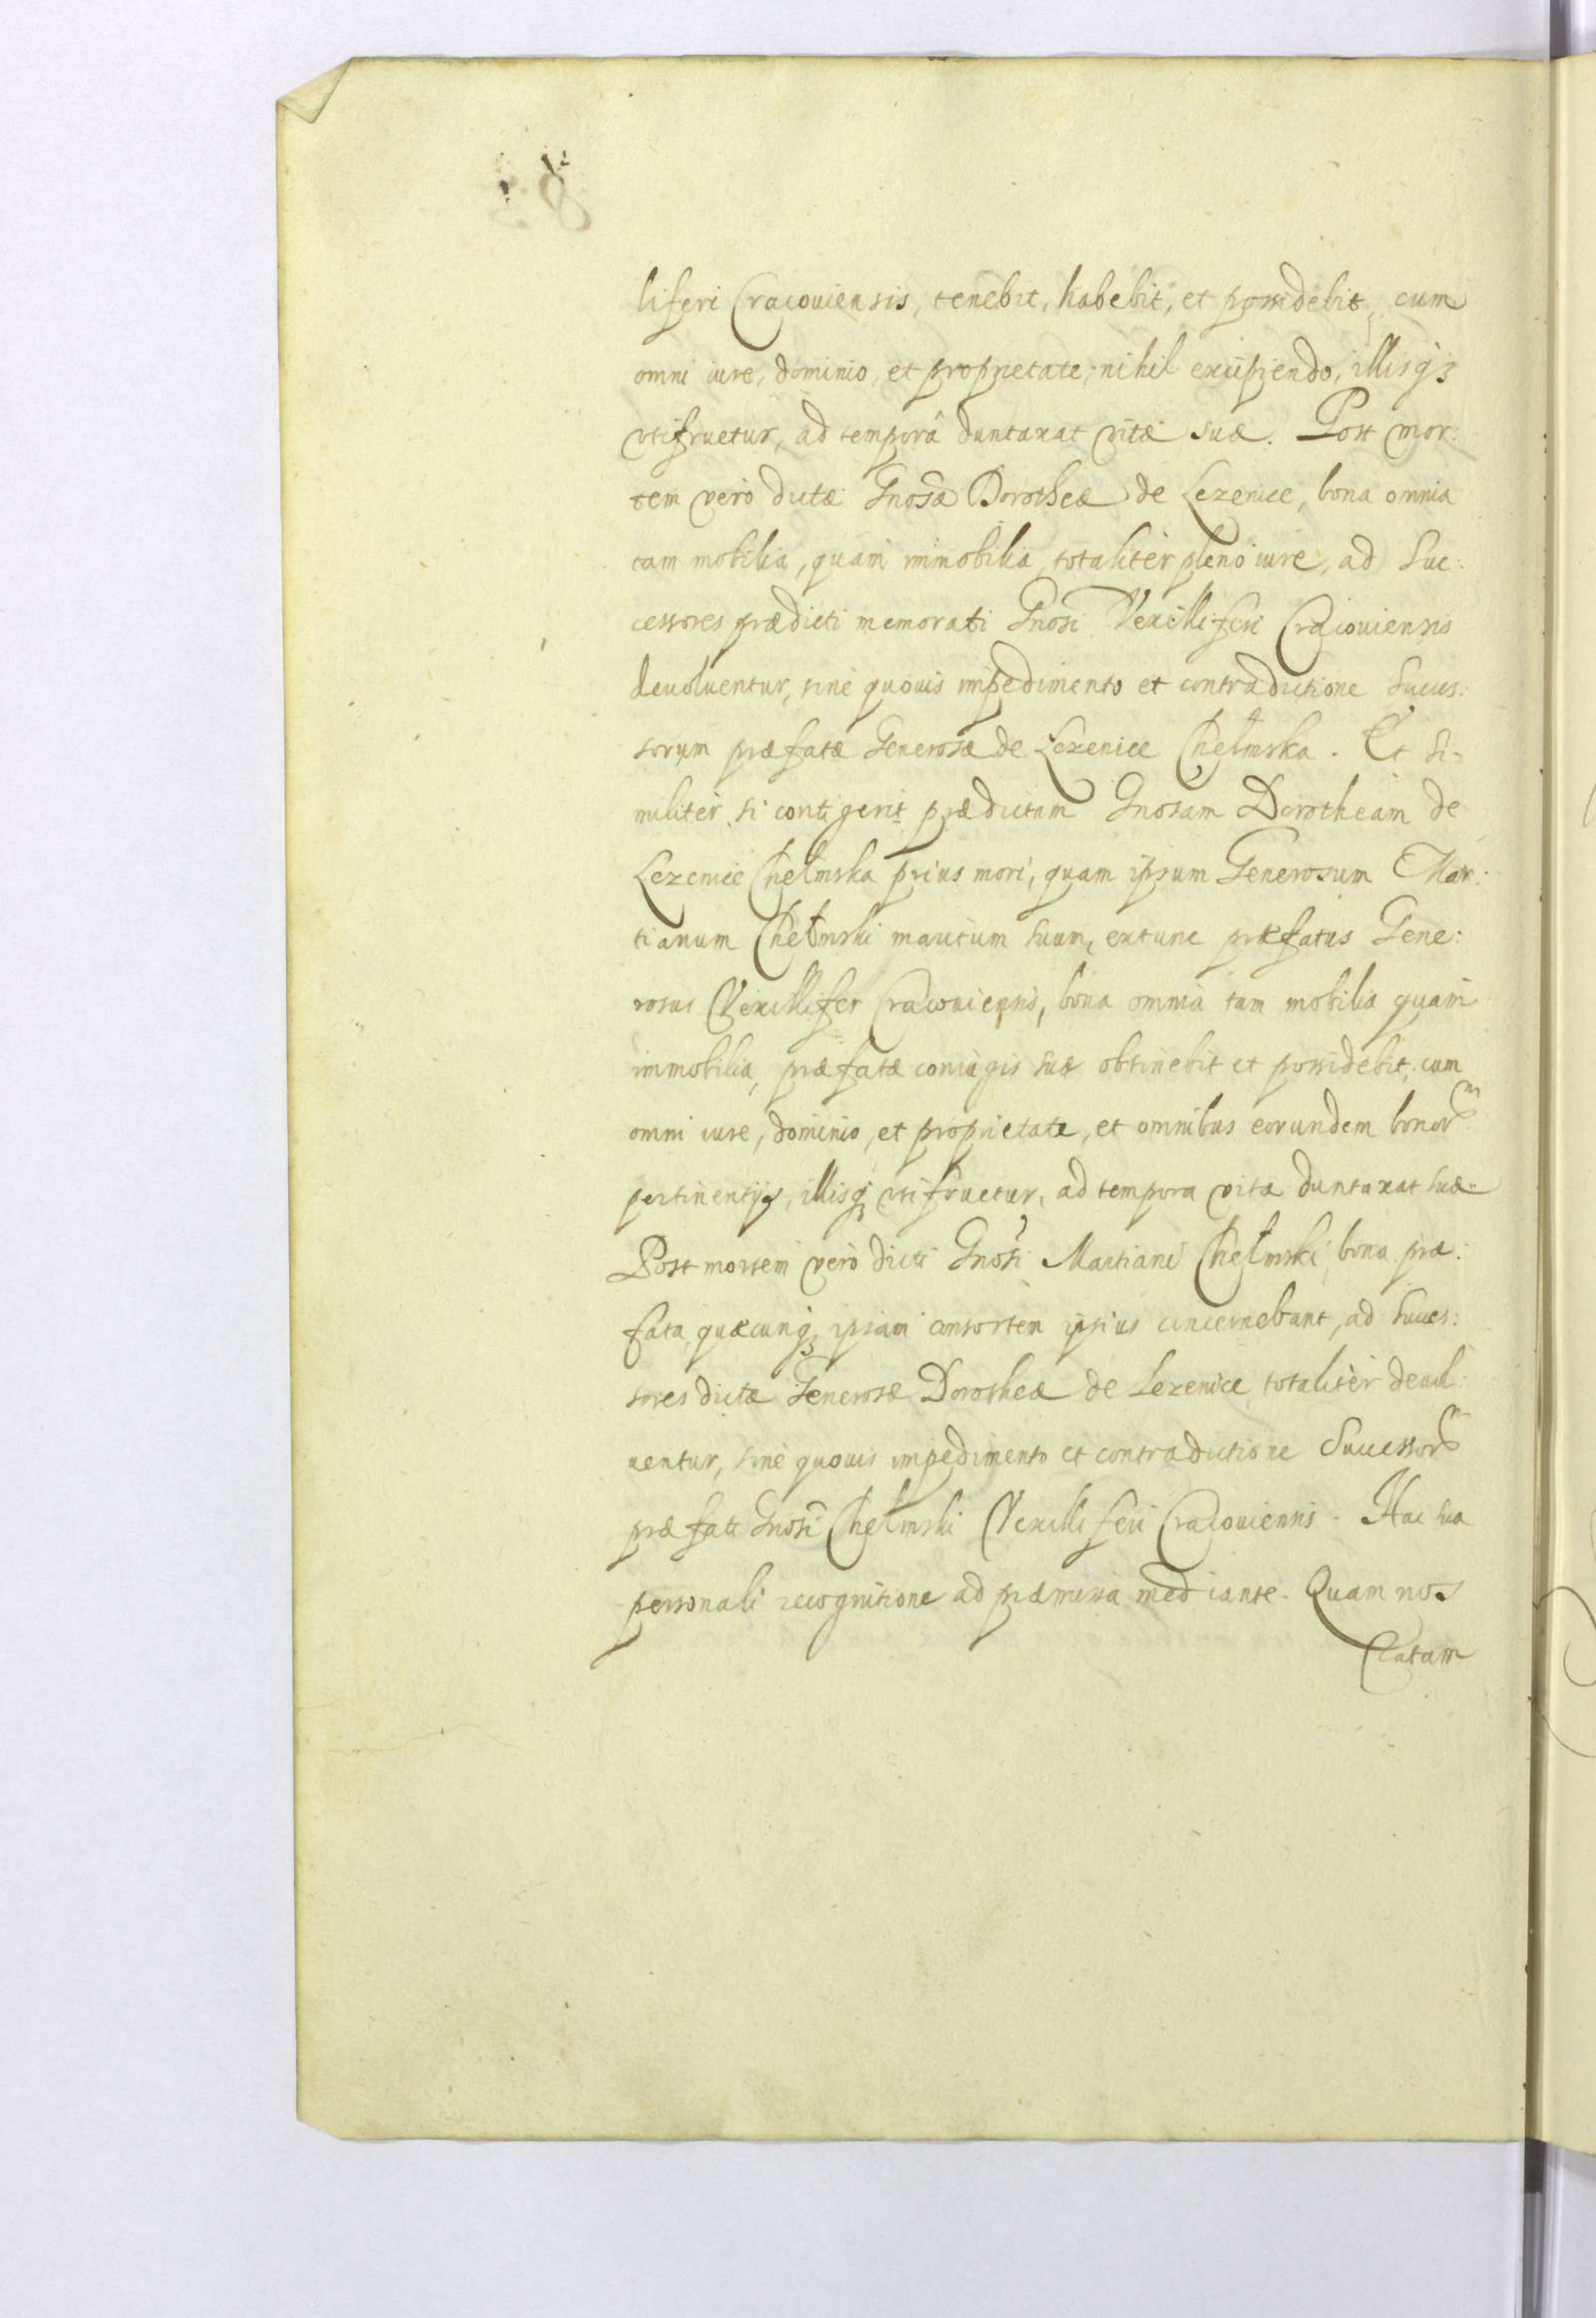 liferi Cracouiensis, tenebit, habebit, et possidebit, cum
omni iure, dominio, et proprietate, nihil excipiendo, illisq3
vtifruetur, ad tempora duntaxat vitæ suæ. Post mor:
tem vero dictæ Gnosæ Dorotheæ de Lezenice, bona omnia
tam mobilia, quam immobilia, totaliter pleno iure, ad Suc:
cessores prædicti memorati Gnosi Vexilliferi Cracouiensis
deuoluentur, sine quouis impedimento et contradictione Succes:
sorum præfatæ Generosæ de Lezenice Chełmska. Et si:
militer si contigerit prædictam Gnosam Dorotheam de
Lezenice Chełmska prius mori, quam ipsum Generosum Mar:
tianum Chełmski maritum suum, extunc præfatus Gene:
rosus Vexillifer Cracouiensis, bona omnia tam mobilia quam
immobilia, præfatæ coniugis suæ obtinebit et possidebit, cum
omni iure, dominio, et proprietate, et omnibus eorundem bonorm
pertinentijs, illisq3 vtifruetur, ad tempora vitæ duntaxat suæ.
Post mortem vero dicti Gnosi Martiani Chełmski, bona præ:
fata, quæcunq3 ipsam consortem ipsius concernebant, ad Succes:
sores dictæ Generosæ Dorotheæ de Lezenice totaliter deuol:
uentur, sine quouis impedimento et contradictione Successorm
præfati Gnosi Chełmski Vexilliferi Cracouiensis. Hac sua
personali recognitione ad præmissa mediante. Quam nos